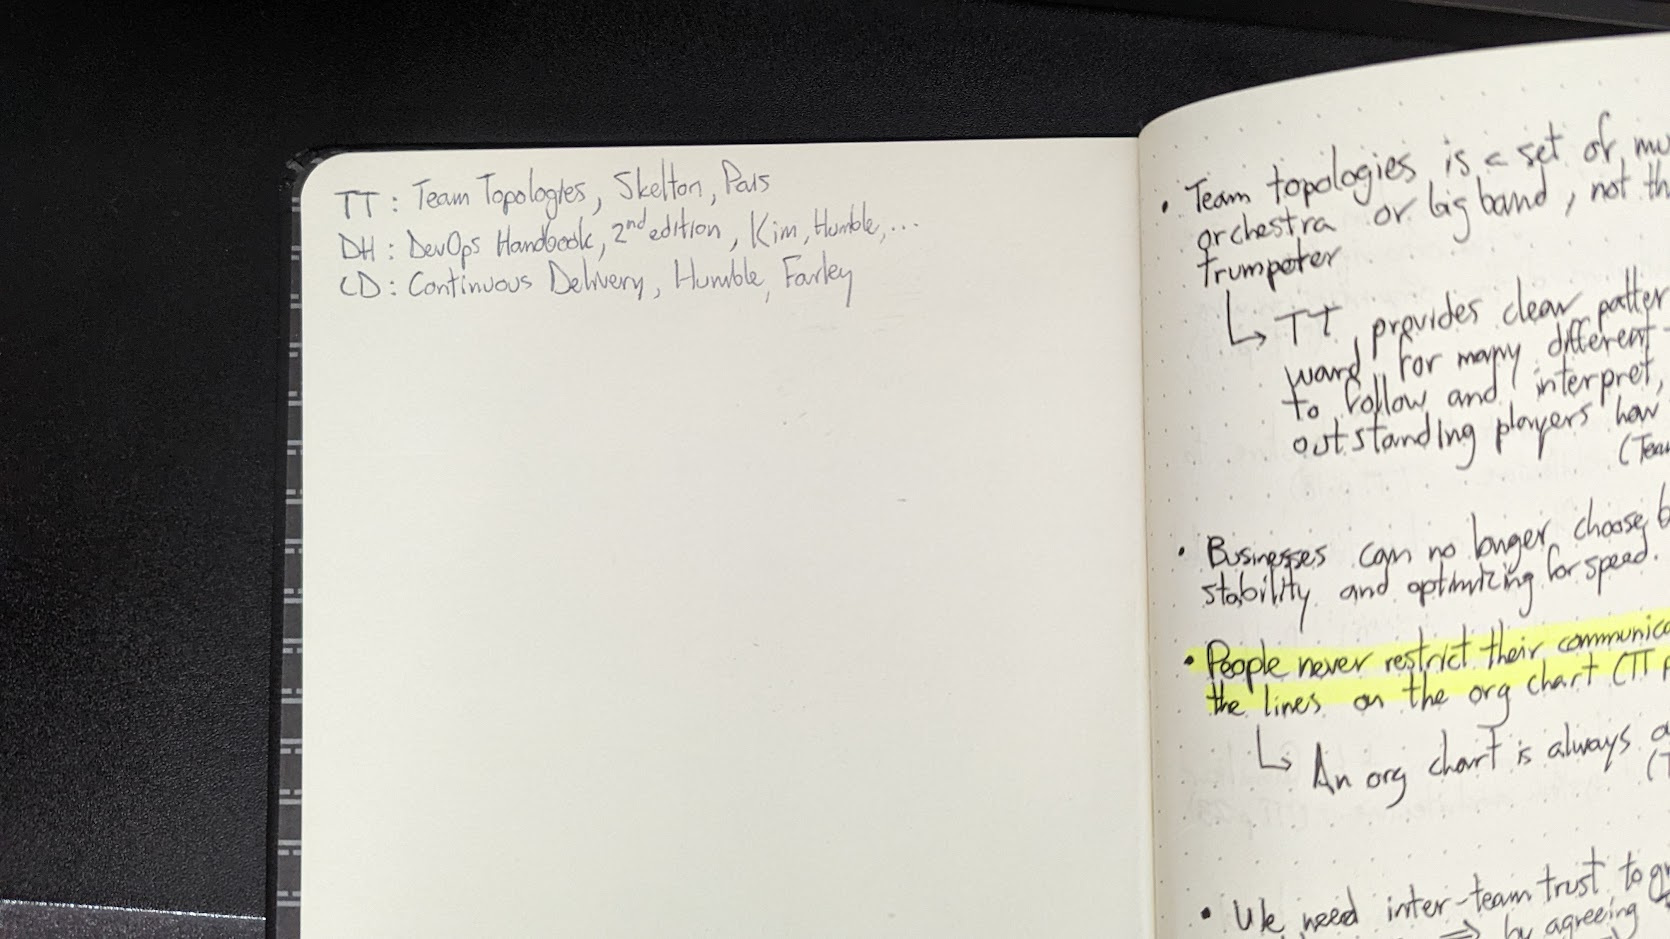 TT: Team Topologies, Skelton, Pais
DH: DevOps Handbook, 2nd edition, Kim, Humble, ...
CD: Continuous Delivery, Humble, Farley
• Team topologies is a set of mu
orchestra or big band, not th
trumpeter
↳ TT provides clear patter
ward for many different
to follow and interpret,
outstanding players how
(Team
• Businesses can no longer choose b
stability and optimizing for speed.
• People never restrict their communica
the lines on the org chart (TT p
↳ An org chart is always a
(T
• We need inter-team trust to
⇒ by agreeing